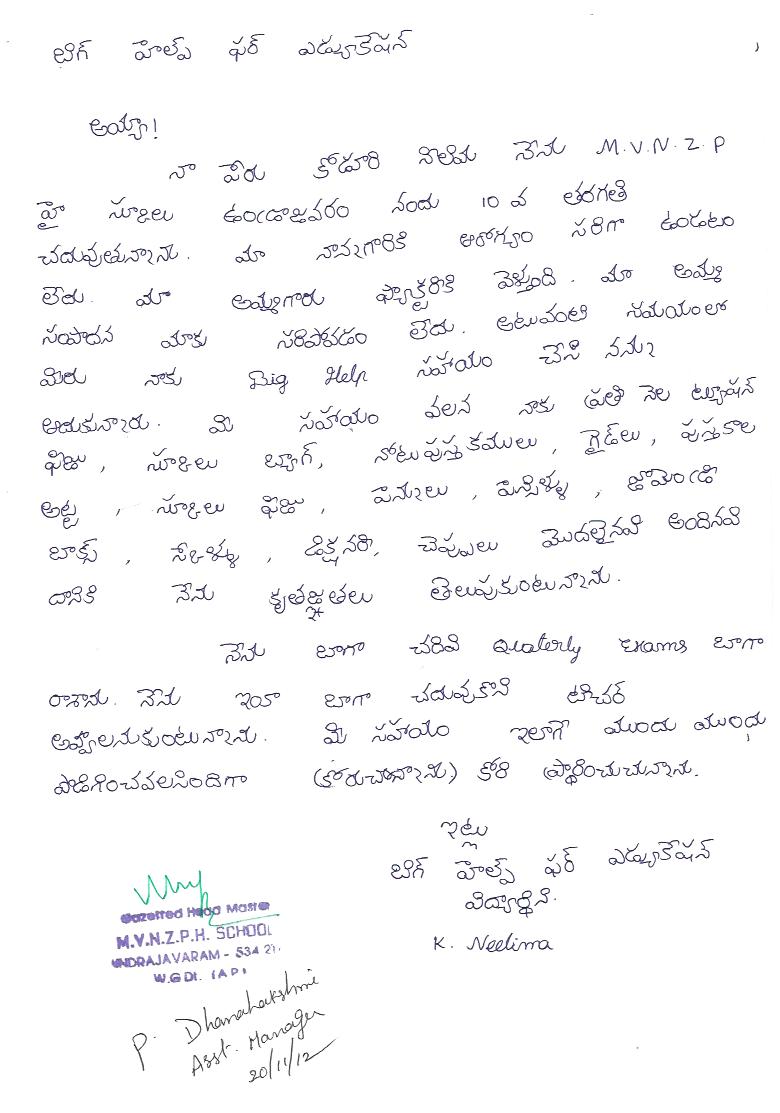 బిగ్ హెల్ప్ ఫర్ ఎడ్యుకేషన్
అయ్యా!
నా పేరు కోడూరి నీలిమ నేను M.V.N.Z.P
హై స్కూలు ఉండ్రాజవరం నందు 10 వ తరగతి
చదువుతున్నాను. మా నాన్నగారికి ఆరోగ్యం సరిగా ఉండటం
లేదు. మా అమ్మగారు ఫ్యాక్టరీకి వెళ్తుంది. మా అమ్మ
సంపాదన మాకు సరిపోవడం లేదు. అటువంటి సమయంలో
మీరు నాకు Big Help సహాయం చేసి నన్ను
ఆదుకున్నారు. మీ సహాయం వలన నాకు ప్రతి నెల ట్యూషన్
ఫీజు, స్కూలు బ్యాగ్, నోటుపుస్తకములు, గైడ్‌లు, పుస్తకాల
అట్ట, స్కూలు ఫీజు, పెన్నులు, పెన్సిళ్ళు, జామెంట్రీ
బాక్స్, స్కేళ్ళు, డిక్షనరీ, చెప్పులు మొదలైనవి అందినవి
దానికి నేను కృతజ్ఞతలు తెలుపుకుంటున్నాను.
నేను బాగా చదివి Quaterly Exams బాగా
రాశాను. నేను ఇంకా బాగా చదువుకొని టీచర్
అవ్వాలనుకుంటున్నాను. మీ సహాయం ఇలాగే ముందు ముందు
పొడిగించవలసిందిగా (కోరుచున్నాను) కోరి ప్రార్థించుచున్నాను.
ఇట్లు
బిగ్ హెల్ప్ ఫర్ ఎడ్యుకేషన్
విద్యార్థిని.
K. Neelima
Gazetted Head Master
M.V.N.Z.P.H. SCHOOL
UNDRAJAVARAM - 534 21
W.G Dt. (A P)
P. Dhanalakshmi
Asst. Manager
20/11/12